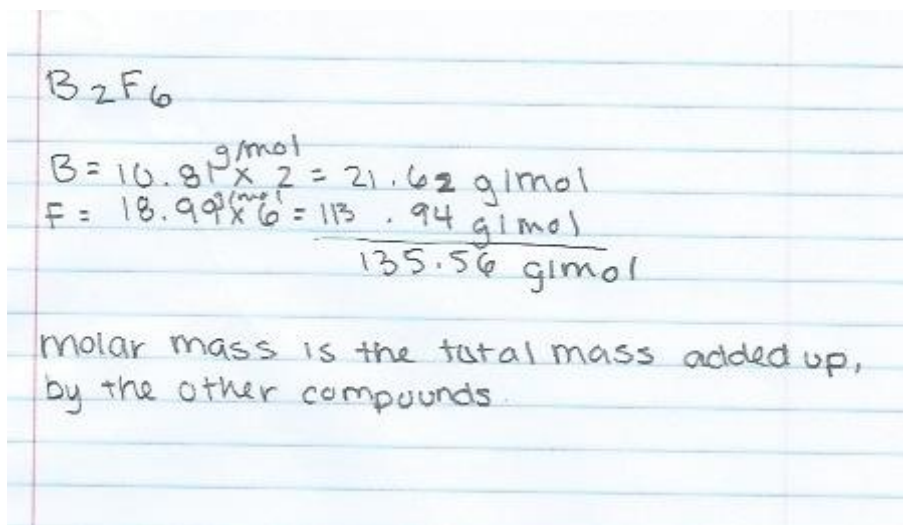 B2F6
B = 10.81 g/mol x 2 = 21.62 g/mol
F = 18.99 g/mol x 6 = 113.94 g/mol
135.56 g/mol
molar mass is the total mass added up,
by the other compounds.